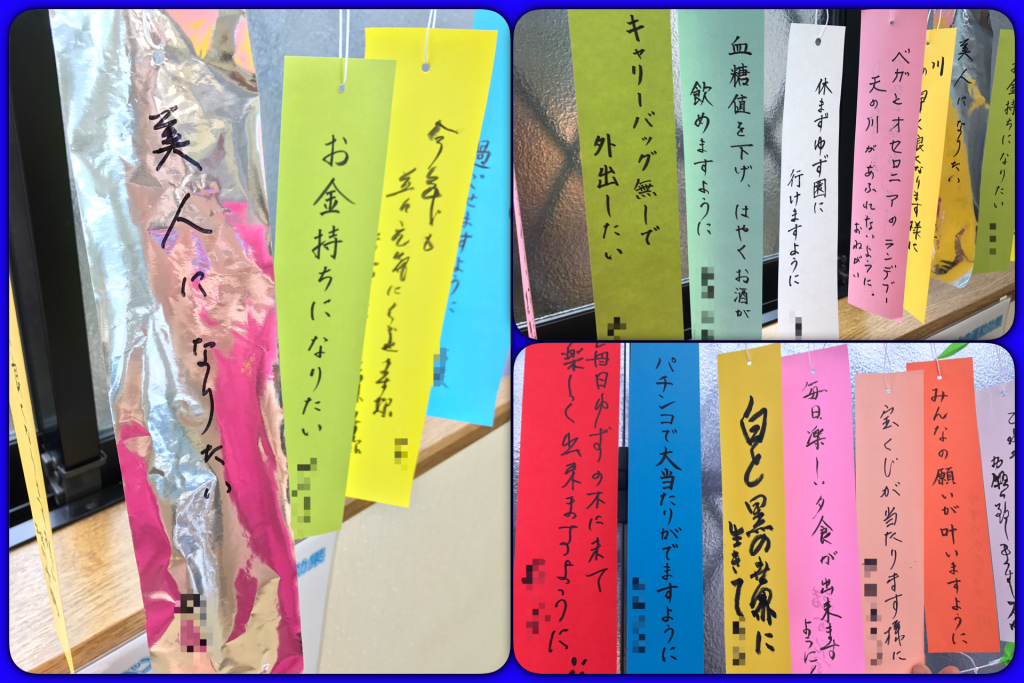 美人になりたい
お金持ちになりたい
今年も
過
せますように
キャリーバッグ無しで
外出したい
血糖値を下げ、はやくお酒が
飲めますように
休まずゆず園に
行けますように
ベガとオセロニアのランデブー
天の川があふれないように。
おねがい
川
美人になりたい
お金持ちになりたい
毎日ゆずの木に来て
楽しく出来ますように
パチンコで大当たりがでますように
白と黒の世界に
生きて
毎日楽しい夕食が出来ます
ように
宝くじが当たります様に
みんなの願いが叶いますように